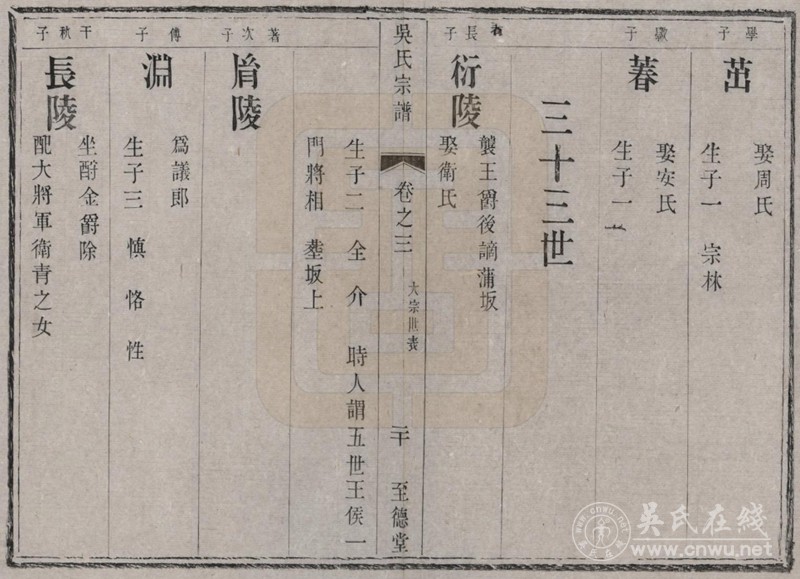 學子
茁
娶周氏
生子一 宗林
子
萶
娶安氏
生子一
三十三世
長子
衍陵
襲王爵後謫蒲坂
娶衛氏
吳氏宗譜
卷之三
大宗世表
二十
至德堂
生子二 全 介 時人謂五世王侯一
門將相 塟坂上
著次子
胥陵
傳子
淵
為議郎
生子三 慎 恪 性
干秋子
長陵
坐酎金爵除
配大將軍衛青之女
吳氏在线
www.cnwu.net